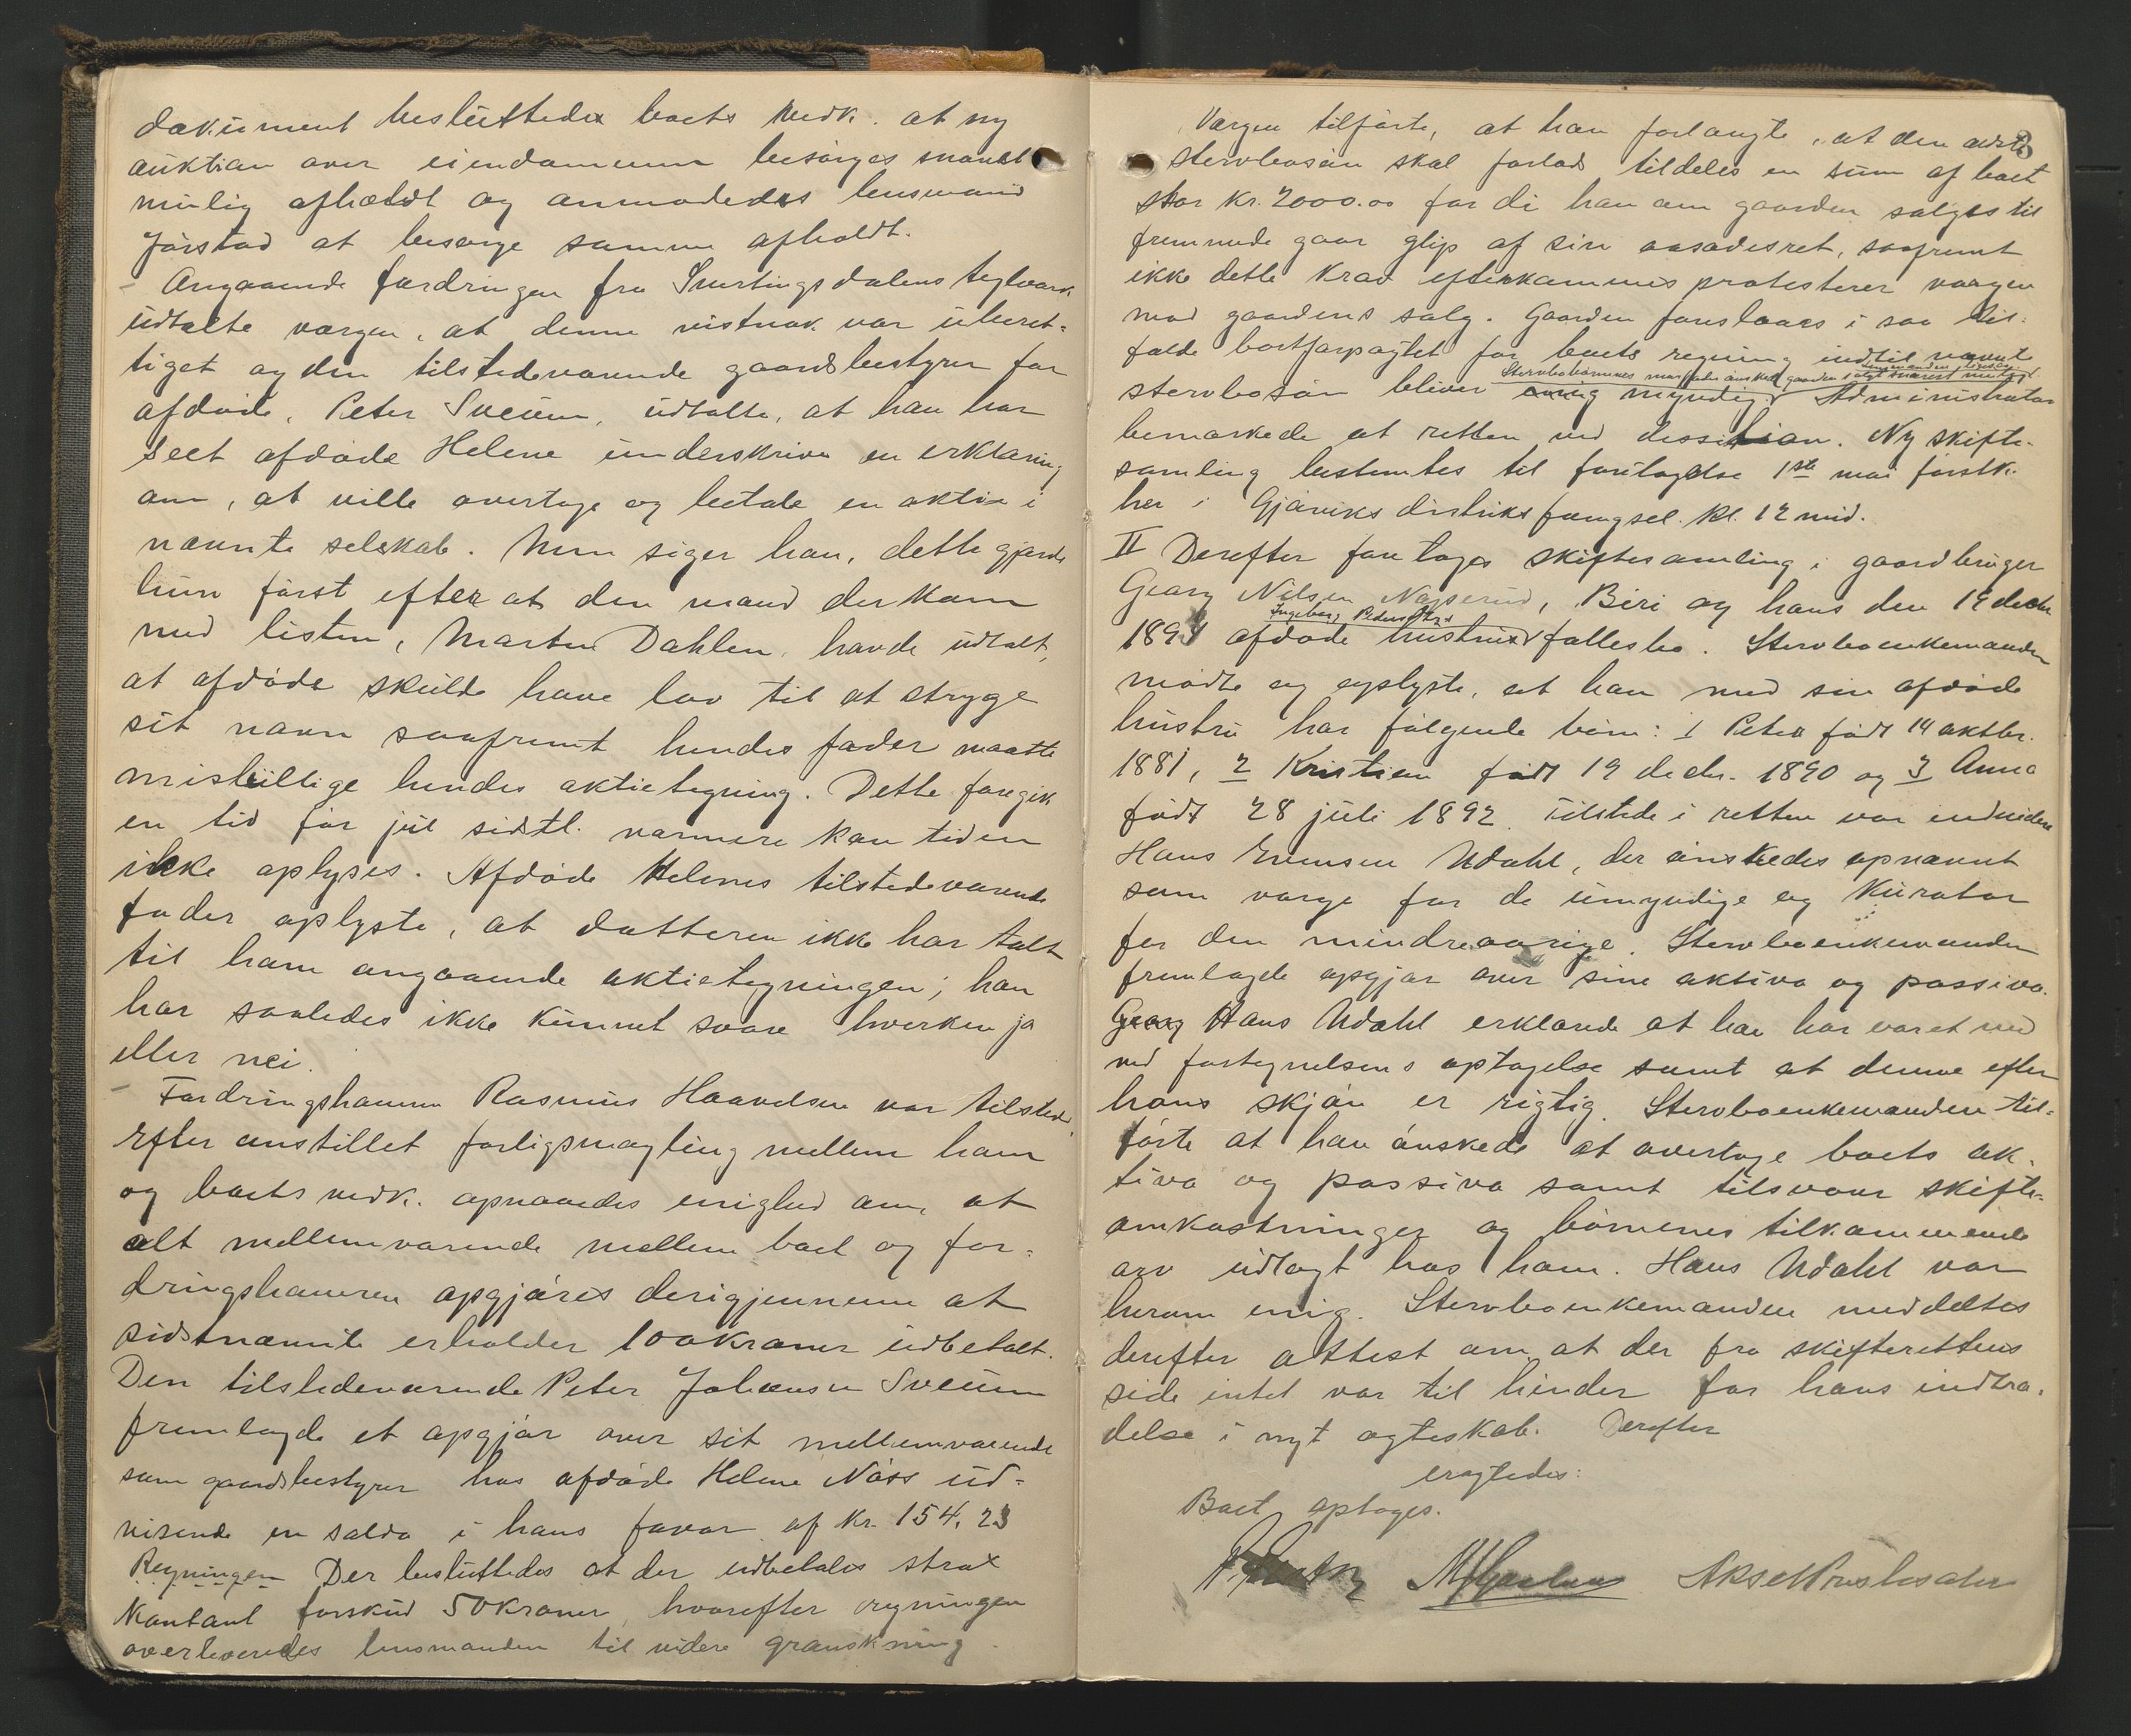 dokument besluttedes boets vedk. at ny
auktion over eiendommen besörges snarest
mulig afholdt og anmodedes lensmand
Jörstad at besörge samme afholdt.
- Angaaende fordringen fra Snertingsdalens teglværk
udtalte værgen, at denne vistnok var uberet-
tiget og den tilstedeværende gaardsbestyrer for
afdöde, Peter Sveum, udtalte, at han har
seet afdöde Helene underskrive en erklæring
om, at ville overtage og betale en aktie i
nævnte selskab. Men siger han, dette gjorde
hun först efter at den mand der kom
med listen, Martin Dahlen, havde udtalt,
at afdöde skulde have lov til at stryge
sit navn saafremt hendes fader maatte
misbillige hendes aktietegning. Dette foregik
en tid för jul sidstl. nærmere kan tiden
ikke oplyses. Afdöde Helenes tilstedeværende
fader oplyste, at datteren ikke har talt
til ham angaaende aktietegningen; han
har saaledes ikke kunnet svare hverken ja
eller nei.
- Fordringshaveren Rasmus Haavelsen var tilstede.
Efter anstillet forligsmægling mellem ham
og boets vedk. opnaaedes enighed om, at
alt mellemværende mellem boet og for-
dringshaveren opgjöres derigjennem at
sidstnævnte erholder 100 kroner udbetalt.
Den tilstedeværende Peter Johansen Sveum
fremlagde et opgjör over sit mellemværende
som gaardsbestyrer hos afdöde Helene Näss ud-
visende en saldo i hans favör af kr. 154,23
Regningen Der besluttedes at der udbetales strax
kontant forskud 50 kroner, hvorefter regningen
overleveredes lensmanden til videre granskning.
3
Værgen tilförte, at han forlangte, at den ældste
stervbosön skal forlods tildeles en sum af boet
stor kr. 2000.00 fordi han om gaarden sælges til
fremmede gaar glip af sin aasædesret, saafremt
ikke dette krav efterkommes protesterer værgen
mod gaardens salg. Gaarden foreslaaes i saa til-
fælde bortforpagtet for boets regning indtil nævnte
Stervbobörnenes morfader önsket gaarden solgt snarest mulig
stervbosön bliver myndig. Administrator
bemærkede at retten ved dissition. Ny skifte-
samling bestemtes til foretagelse 1ste mai förstk.
her i Gjöviks distriktsfængsel kl. 12 mid.
II Derefter foretoges skiftesamling i gaardbruger
Georg Nilsen Nøsserud, Biri og hans den 19 decbr
Ingeborg Pedersdtr
1894 afdöde hustrus fællesbo. Stervboenkemanden
mödte og oplyste, at han med sin afdöde
hustru har fölgende börn: 1 Peter födt 14 oktbr.
1881, 2 Kristian födt 19 decbr. 1890 og 3 Anna
födt 28 juli 1892. Tilstede i retten var endvidere
Hans Evensen Udahl, der önskedes opnævnt
som værge for de umyndige og kurator
for den mindreaarige. Stervboenkemanden
fremlagde opgjör over sine aktiva og passiva.
Georg Hans Udahl erklærede at han har været med
ved fortegnelsens optagelse samt at denne efter
hans skjön er rigtig. Stervboenkemanden til-
förte at han önskede at overtage boets ak-
tiva og passiva samt tilsvare skifte-
omkostninger og börnenes tilkommende
arv udlagt hos ham. Hans Udahl var
herom enig. Stervboenkemanden meddeltes
derefter attest om at der fra skifterettens
side intet var til hinder for hans indtræ-
delse i nyt ægteskab. Derefter
eragtedes:
Boet optages.